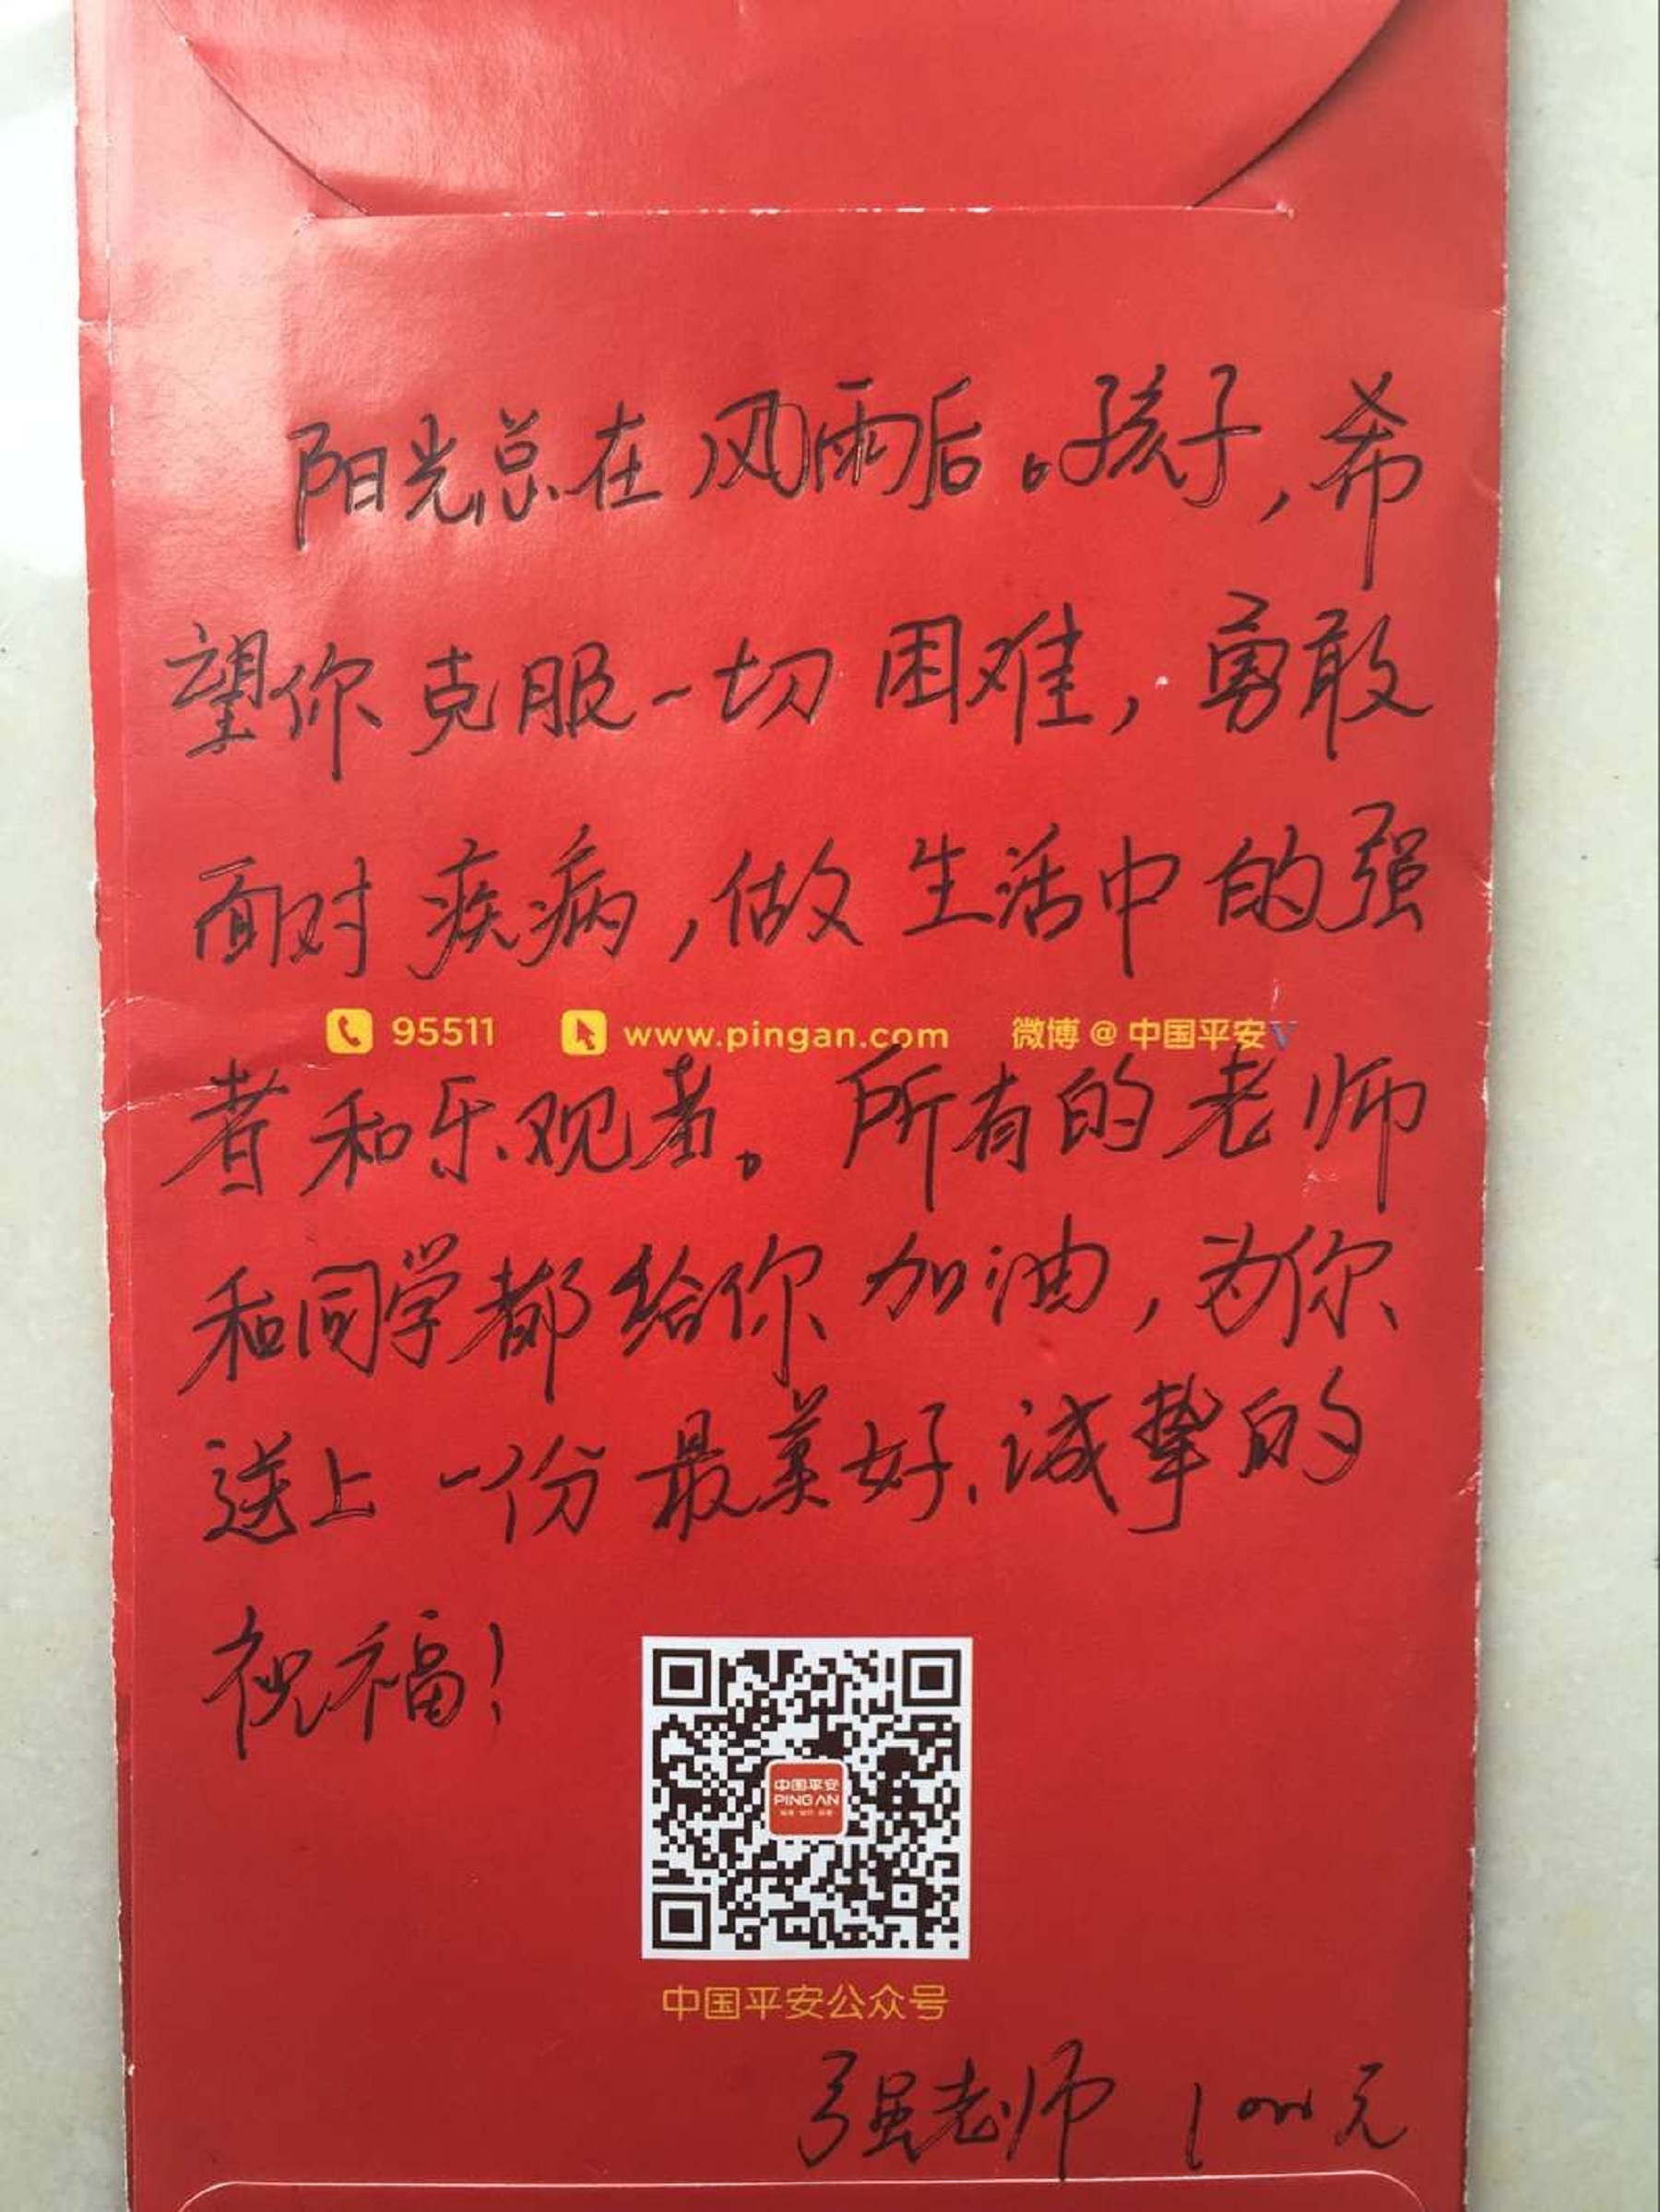 阳光总在风雨后。孩子,希
望你克服一切困难,勇敢
面对疾病,做生活中的强
95511 www.pingan.com 微博@中国平安V
者和乐观者。所有的老师
和同学都给你加油,为你
送上一份最美好、诚挚的
祝福!
中国平安
PING AN
中国平安公众号
强老师 1000元